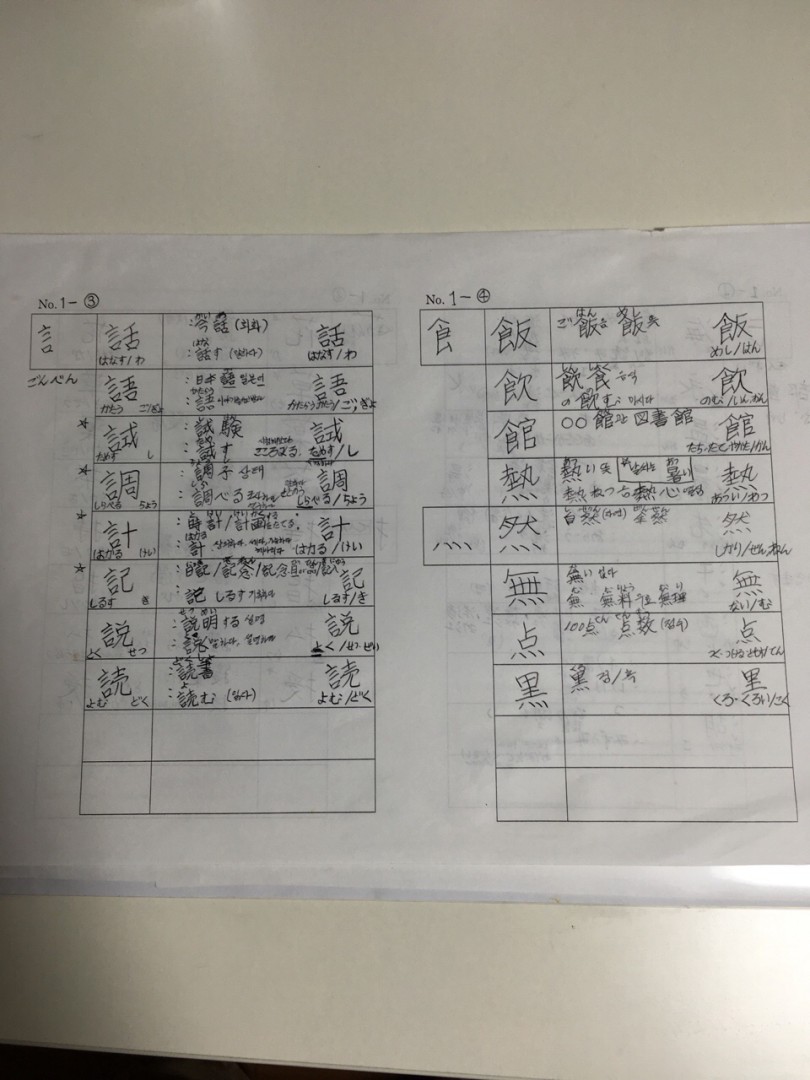 No. 1-③
言
ごんべん
話
はなす/わ
(회화)
話す (말하다)
はな
話
はなす/わ
語
かたらう
: 日本語 일본어
かたらう
: 語
語
★ 試
ためす し
: 試験
: 試す
試
ためす/し
★ 調
しらべる ちょう
: 調子 상태
: 調べる
調
しらべる/ちょう
★ 計
はかる けい
: 時計/計画
はかる
: 計
計
はかる/けい
★ 記
しるす き
: 日記/記念/
: 記 しるす
記
しるす/き
説
よく せつ
せつ めい
: 説明する 설명
: 説
説
よく/せつ・ぜい
読
よむ どく
: 読書
: 読む (읽다)
読
よむ/どく
No. 1-④
飠
飯
ご飯 飯
はん めし
飯
めし/はん
飲
飲食 음식
の 飲む 마시다
飲
館
〇〇館 図書館
館
熱
熱い 暑い
熱 ねつ 熱心
熱
あつい/ねつ
灬
然
自然
然
しかり/ぜん、ねん
無
無い 없다
無 無料 무료 無理
無
ない/む
点
100点 点数 (점수)
点
黒
黒 검/흑
黒
くろ・くろい/こく